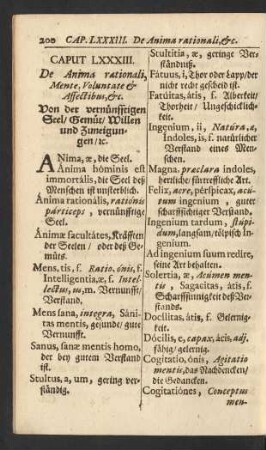 200 CAP. LXXXIII. De Anima rationali, &c.
CAPUT LXXXIII.
De Anima rationali,
Mente, Voluntate &
Affectibus, &c.
Von der vernünfftigen
Seel/ Gemüt/ Willen
und Zuneigun-
gen/ ꝛc.
ANima, æ, die Seel.
Anima hóminis est
immortális, die Seel deß
Menschen ist unsterblich.
Anima rationális, ratiónis
párticeps, vernünfftige
Seel.
Animæ facultátes, Kräfften
der Seelen/ oder deß Ge-
müts.
Mens, tis, f. Ratio, ónis, f.
Intelligentia, æ, f. Intel-
lectus, us, m. Vernunfft/
Verstand.
Mens sana, integra, Sáni-
tas mentis, gesunde/ gute
Vernunfft.
Sanus, sanæ mentis homo,
der bey gutem Verstand
ist.
Stultus, a, um, gering ver-
ständig.
Stultitia, æ, geringe Ver-
ständnuß.
Fátuus, i, Thor oder Lapp/ der
nicht recht gescheid ist.
Fatúitas, átis, f. Alberkeit/
Thorheit/ Ungeschicklich-
keit.
Ingenium, ii, Natúra, æ,
Indoles, is, f. natürlicher
Verstand eines Men-
schen.
Magna, præclara indoles,
herrliche/ fürtreffliche Art.
Felix, acre, pérspicax, acú-
tum ingenium, guter
scharffsichtiger Verstand.
Ingenium tardum, stúpi-
dum, langsam/ tölpisch in-
genium.
Ad ingenium suum redire,
seine Art behalten.
Solertia, æ, Acúmen men-
tis, Sagacitas, átis, f.
Scharffsinnigkeit deß Ver-
stands.
Docílitas, átis, f. Gelernig-
keit.
Dócilis, e, capax, ácis, adj.
fähig/ gelernig.
Cogitatio, ónis, Agitatio
mentis, das Nachdencken/
die Gedancken.
Cogitatiónes, Conceptus
men-